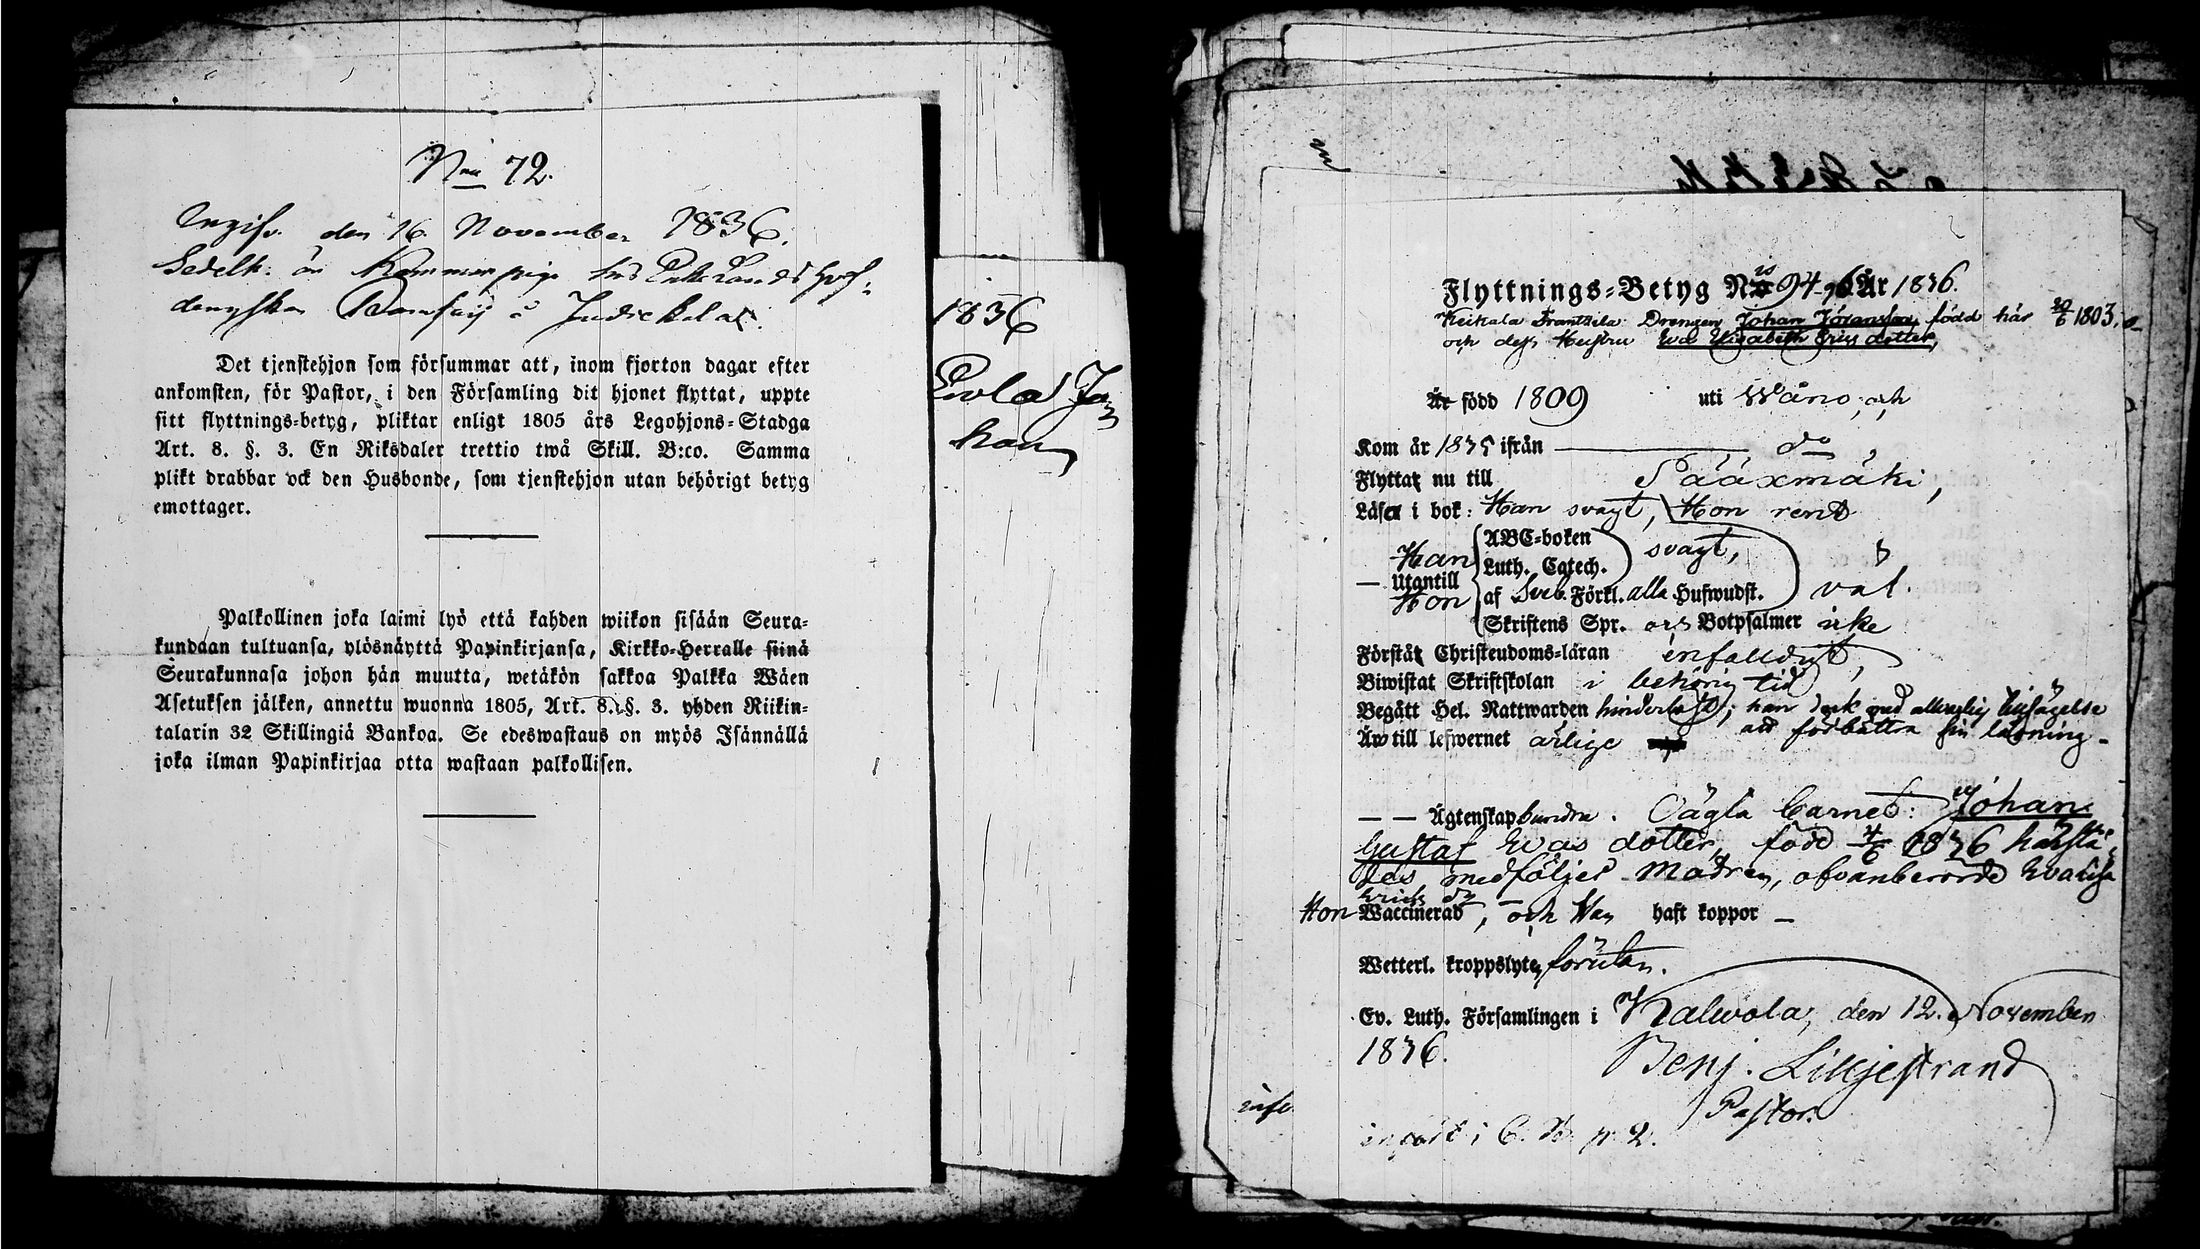 No 72.
den 16 November 1836.
Det tjenstehjon som försummar att, inom fjorton dagar efter
ankomsten, för Pastor, i den Församling dit hjonet flyttat, uppte
sitt flyttnings-betyg, pliktar enligt 1805 års Legohjons-Stadga
Art. 8. §. 3. En Riksdaler trettio twå Skill. B:co. Samma
plikt drabbar ock den Husbonde, som tjenstehjon utan behörigt betyg
emottager.
Palkollinen joka laimi lyö että kahden wiikon sisään Seura-
kundaan tultuansa, ylösnäyttä Papinkirjansa, Kirkko-Herralle siinä
Seurakunnasa johon hän muutta, wetäkön sakkoa Palkka Wäen
Asetuksen jälken, annettu wuonna 1805, Art. 8. §. 3. yhden Riikin-
talarin 32 Skillingiä Bankoa. Se edeswastaus on myös Isännällä
joka ilman Papinkirjaa otta wastaan palkollisen.
1836
Flyttnings-Betyg No 94-96 År 1836.
Drengen Johan Jöransson, född här 1803,
och dess Hustru Eva Elisabeth Ericsdotter,
Är född 1809 uti Wåno, och
Kom år 1835 ifrån do
Flyttat nu till Sääxmäki,
Läsa i bok: Han svagt, Hon rent
Han ABC-boken svagt,
— Utantill Luth. Catech.
Hon af Sveb. Förkl. alla Hufwudst. väl.
Skriftens Spr. och Botpsalmer icke
Förstå Christendoms-läran enfaldigt,
Biwistat Skriftskolan i behörig tid
Begått Hel. Nattwarden hinderlöst; han dock med allvarlig tillsägelse
att förbättra sin läsning -
Äro till lefwernet ärlige
— — Ägtenskap bundna. Oägta barnet: Johan
Gustaf Evas dotter, född 4/6 1836 härstä-
des medföljer Modren, ofvanberörde Eva Lisa
Erics dr
Hon Waccinerad, och Han haft koppor —
Wetterl. kroppslyte förutan.
Ev. Luth. Församlingen i Kalwola, den 12. November
1836.
Benj. Liljestrand
Pastor.